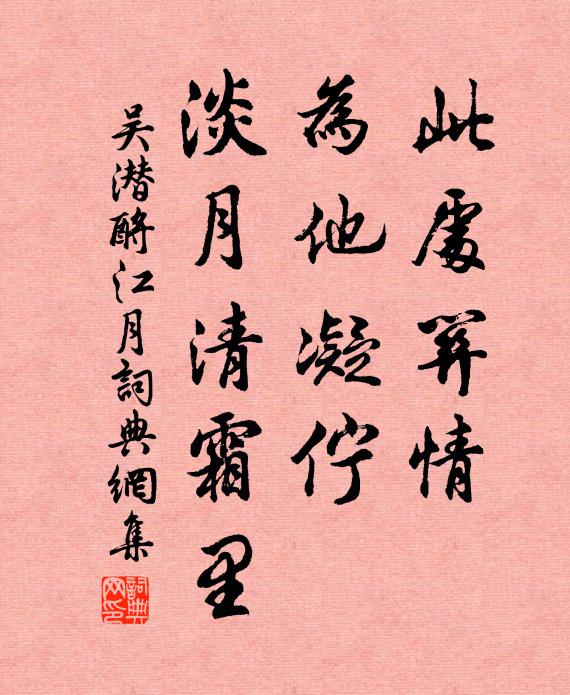 此處關情
為他凝佇
淡月清霜里
吴潛酹江月詞典網集
詞典网印